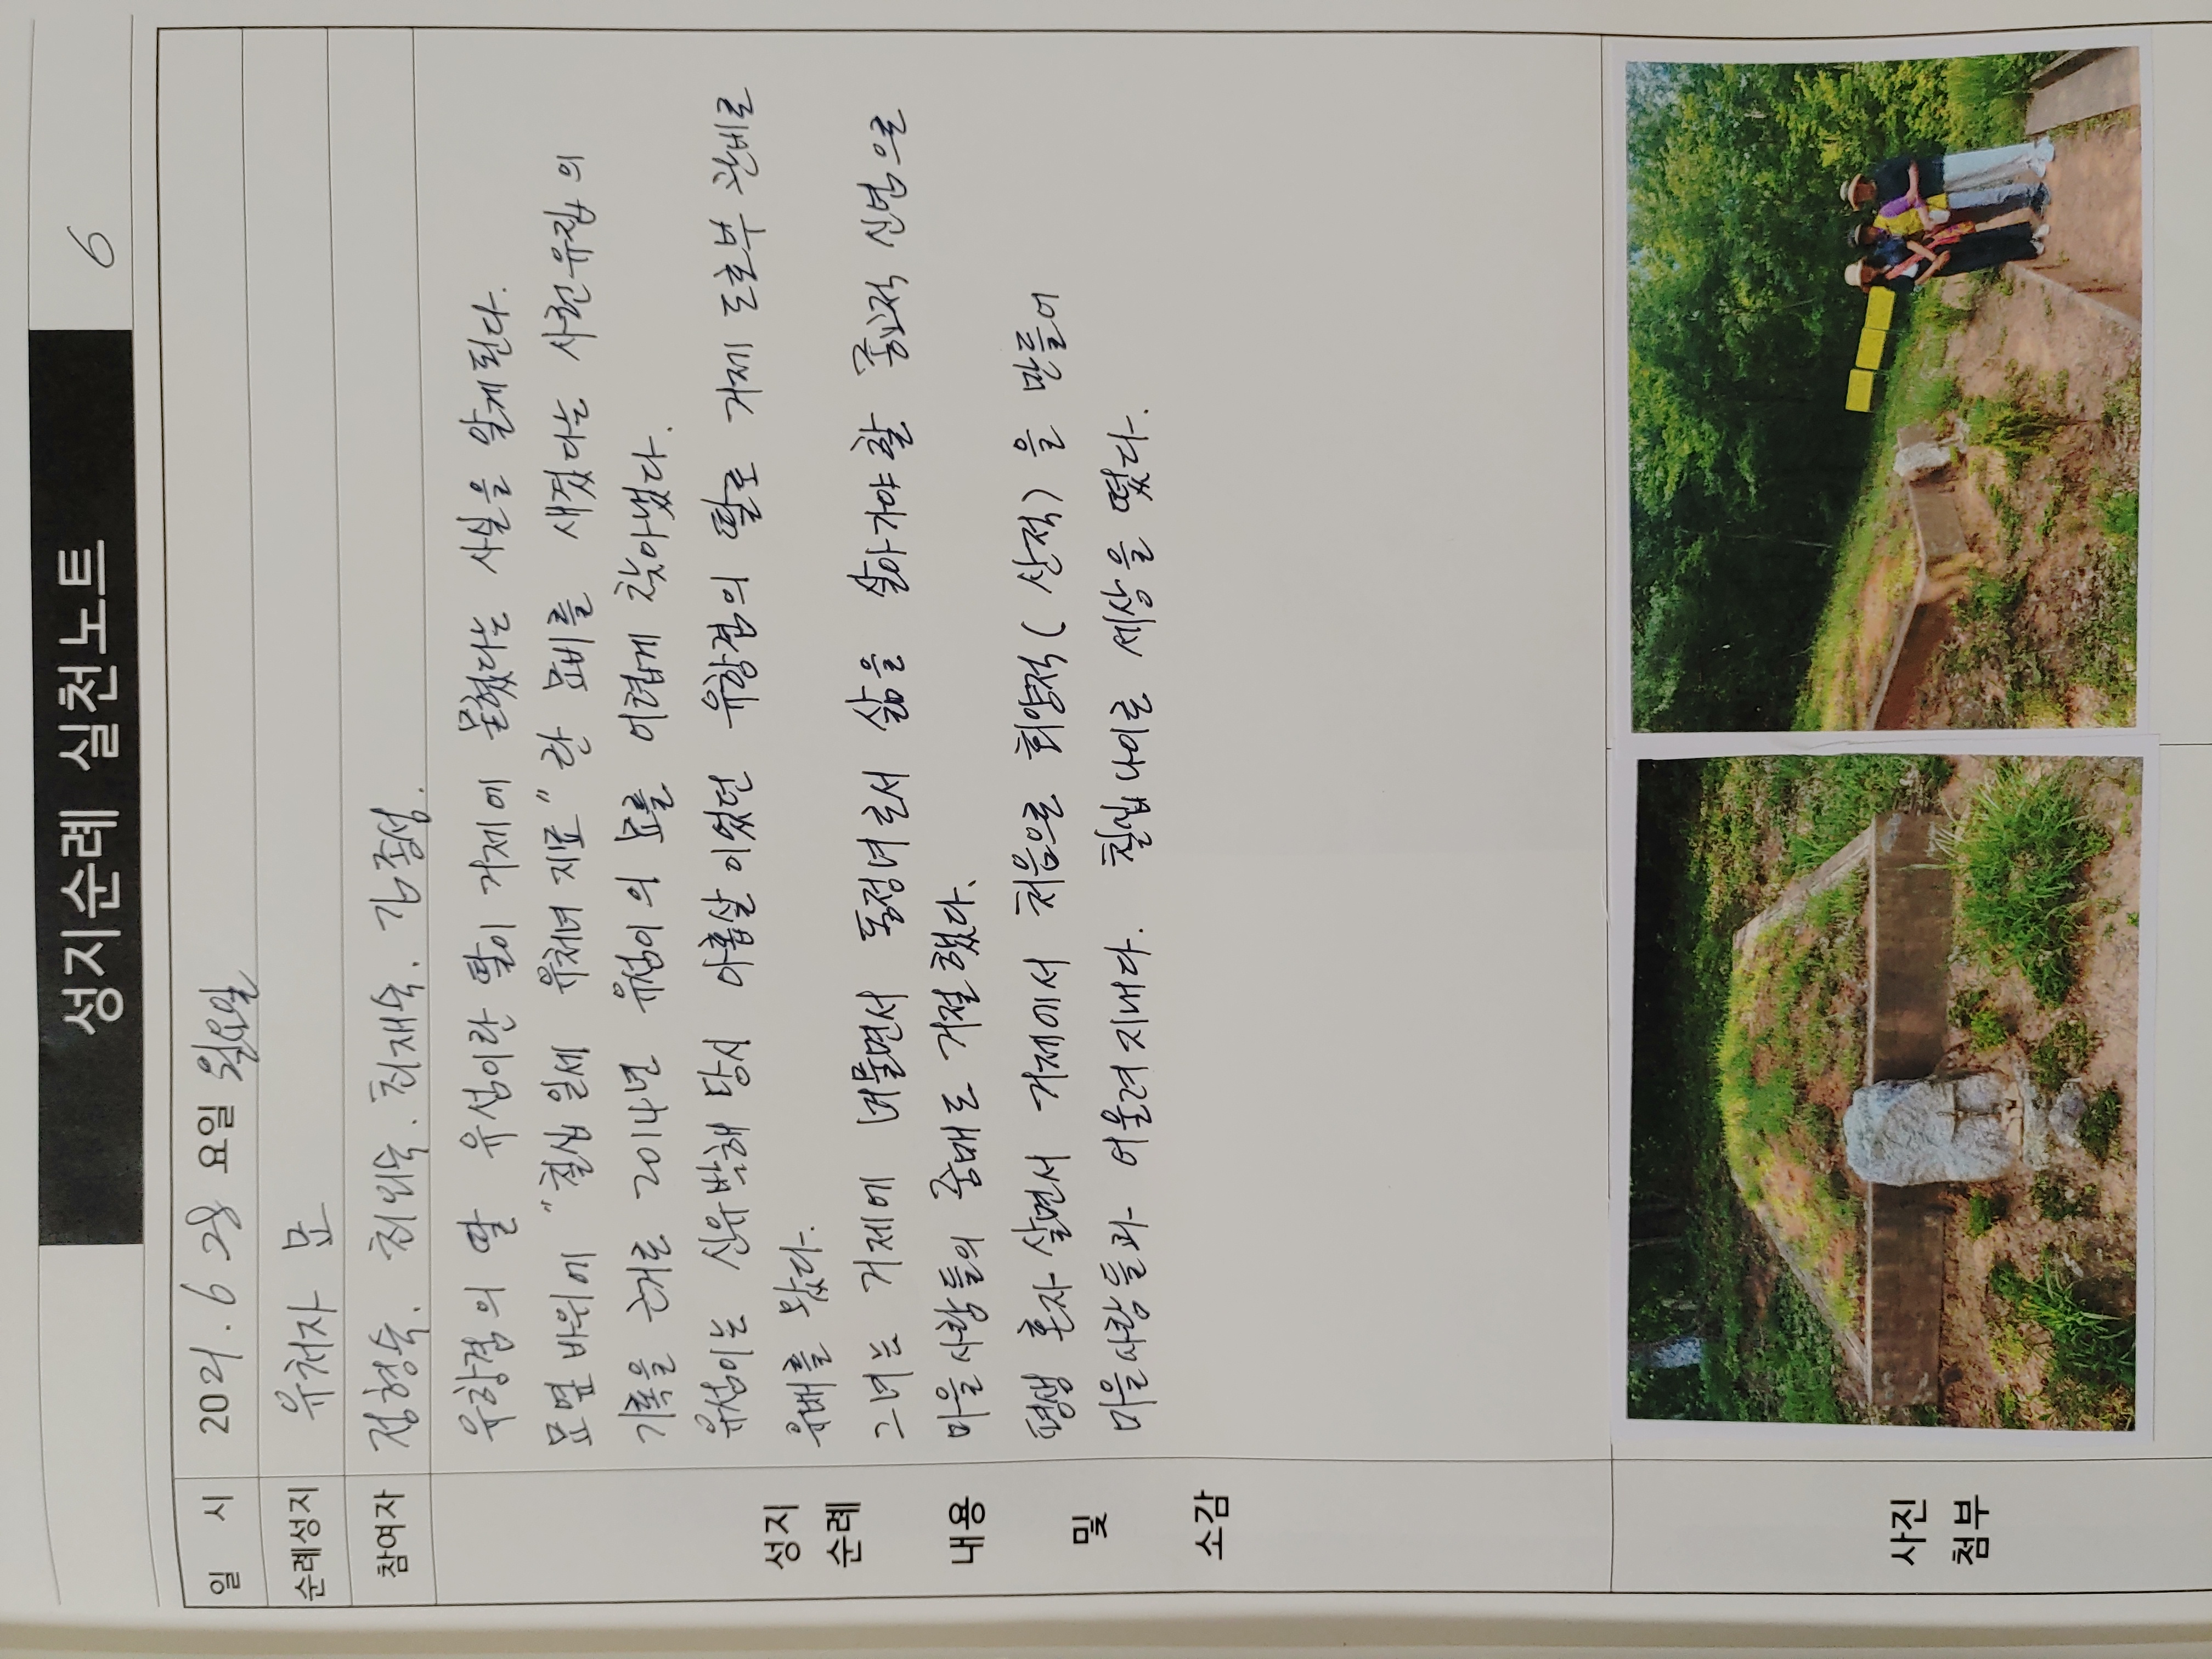 성지순례 실천노트 6
일 시 2021. 6 28 요일 월요일
순례성지 유처자 묘
참여자 정형숙. 최외숙. 최재숙. 김종성.
유항검의 딸 유섬이란 딸이 거제에 묻혔다는 사실을 알게된다.
묘옆 바위에 "칠십 일세 유처녀 지묘" 란 묘비를 새겼다는 사헌유집의
기록을 근거로 2014년 유섬이의 묘를 어렵게 찾아냈다.
유섬이는 신유박해 당시 아홉살 이었던 유항검의 딸로 거제 도호부 관비로
유배를 왔다.
그녀는 거제에 머물면서 동정녀로서 삶을 살아가야 할 종교적 신념으로
마을사람들의 중매도 거절했다.
평생 혼자 살면서 거제에서 처음으로 회양적( 산적) 을 만들어
마을사람들과 어울려 지내다. 칠십 나이로 세상을 떴다.
성지
순례
내용
및
소감
사진
첨부